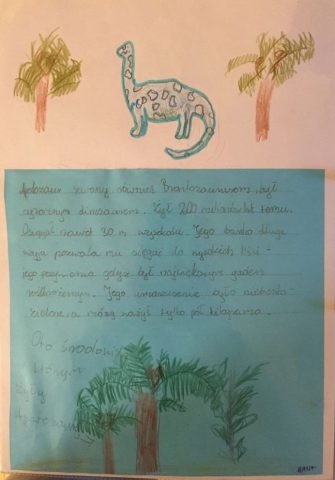 Apatozaur zwany również Brontozaurusem, był
ogromnym dinozaurem. Żył 200 milionów lat temu.
Osiągał nawet 30 m wysokości. Jego bardzo długa
szyja pozwala mu sięgać do wysokich liści -
jego pożywienia gdyż był największym gadem
roślinożernym. Jego umaszczenie było niebiesko-
zielone, a mózg ważył tylko pół kilograma.
Oto środowisko
którym
żyły